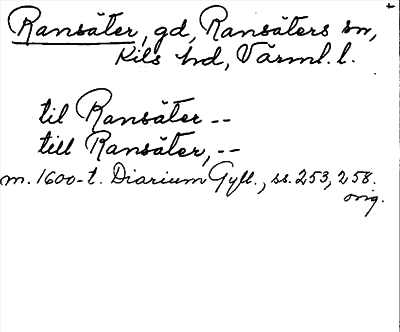 Ransäter, gd, Ransäters sn,
Kils hd, Värml. l.
til Ransäter --
till Ransäter, --
m. 1600-t. Diarium Gyll., ss. 253, 258.
orig.